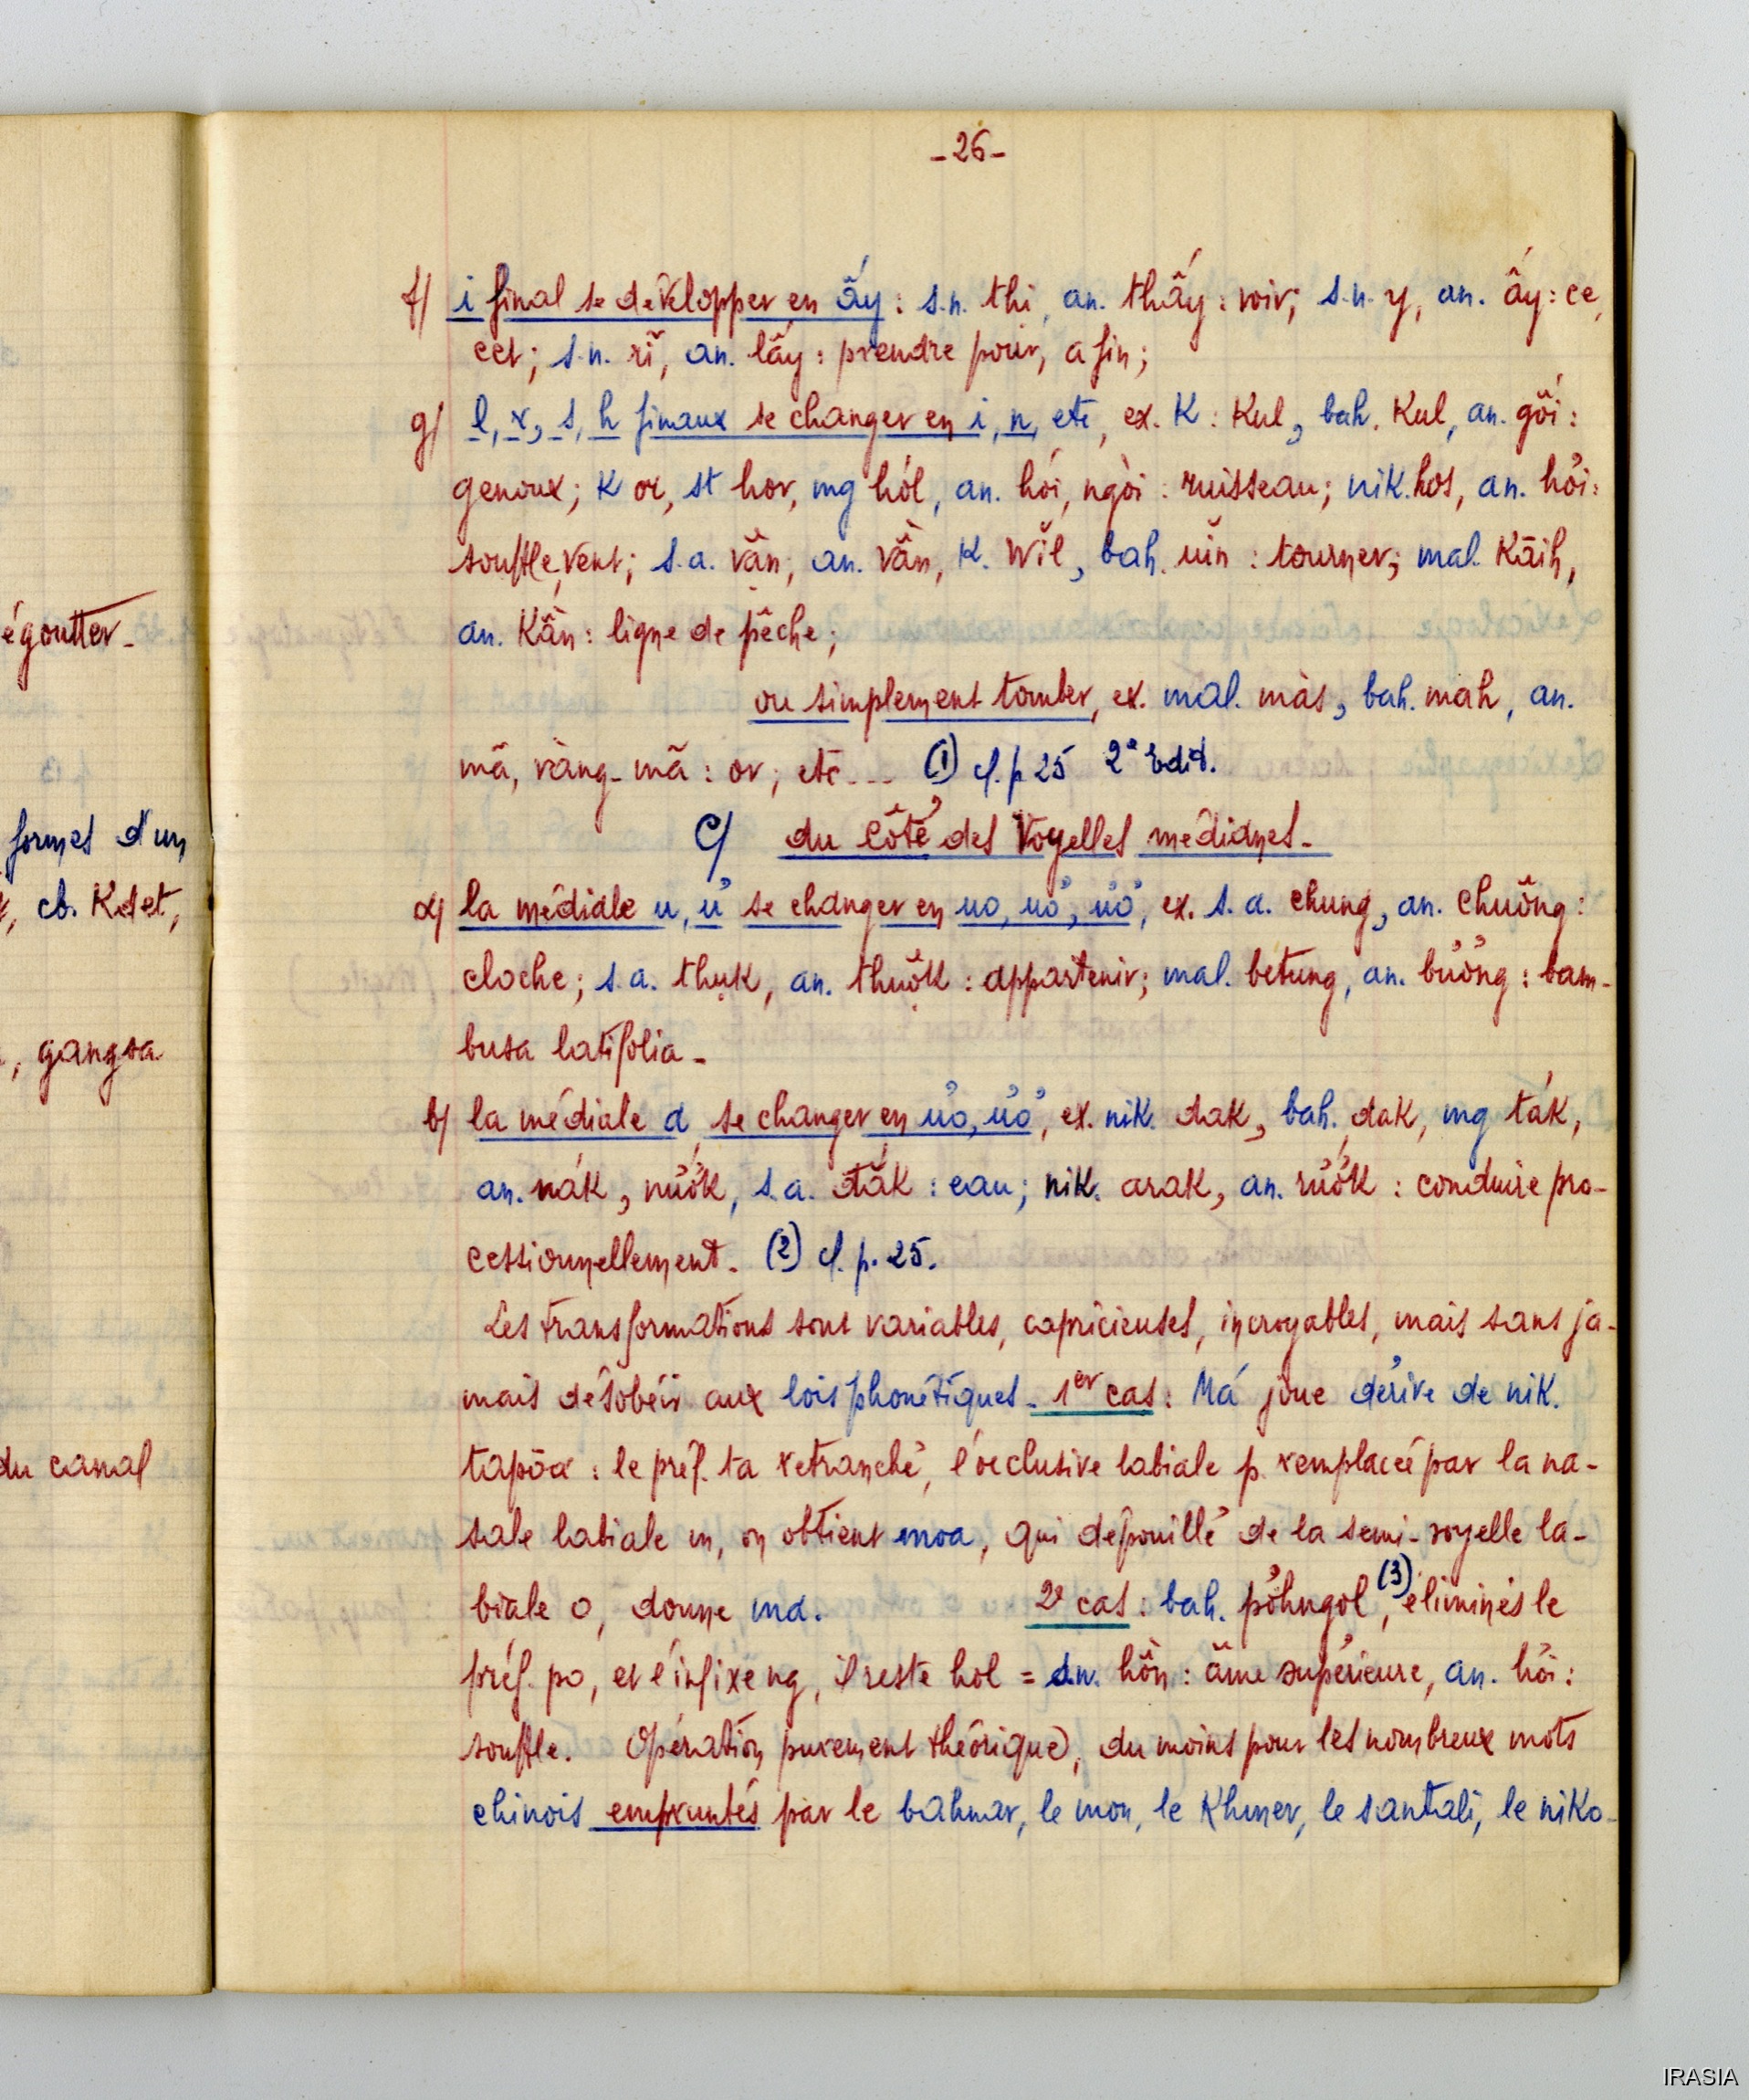 égoutter -
formes d'un
, cb. Kdet,
, gangsa
du canal
- 26 -
f/ i final se développer en ấy : s.n. thi, an. thấy : voir; s.n. y, an. ấy : ce,
cet; s.n. rĭ, an. lấy : prendre pour, afin;
g/ l, r, s, h finaux se changer en i, n, etc, ex. K : Kul, bah. Kul, an. gối :
genoux; K or, st hor, mg hól, an. hói, ngòi : ruisseau; nik. hos, an. hỏi :
souffle, vent; s.a. vần, an. vần, K. wĭl, bah. uĭn : tourner; mal. Kāih,
an. Kần : ligne de pêche;
ou simplement tomber, ex. mal. màs, bah. mah, an.
mã, vàng-mã : or; etc... (1) cf. p 25 2e Edit.
C/ du côté des voyelles médianes -
a/ la médiale u, ư se changer en uo, uơ, ươ, ex. s.a. chung, an. chuông :
cloche; s.a. thuk, an. thuộk : appartenir; mal. betung, an. bương : bam-
busa latifolia -
b/ la médiale a se changer en ưo, ươ, ex. nik. dak, bah. dak, mg ták,
an. nák, nướk, s.a. đắk : eau; nik. arak, an. rướk : conduire pro-
cessionnellement - (2) cf. p. 25.
Les transformations sont variables, capricieuses, incroyables, mais sans ja-
mais désobéir aux lois phonétiques - 1er cas : Má joue dérive de nik.
tapōa : le préf. ta retranché, l'occlusive labiale p remplacée par la na-
sale labiale m, on obtient moa, qui dépouillé de la semi-voyelle la-
biale o, donne ma. 2e cas : bah. pơhngol (3), éliminés le
préf. po, et l'infixe ng, il reste hol = s.n. hồn : âme supérieure, an. hơi :
souffle. Opération purement théorique, du moins pour les nombreux mots
chinois empruntés par le bahnar, le mon, le Khmer, le santali, le niko-
IRASIA